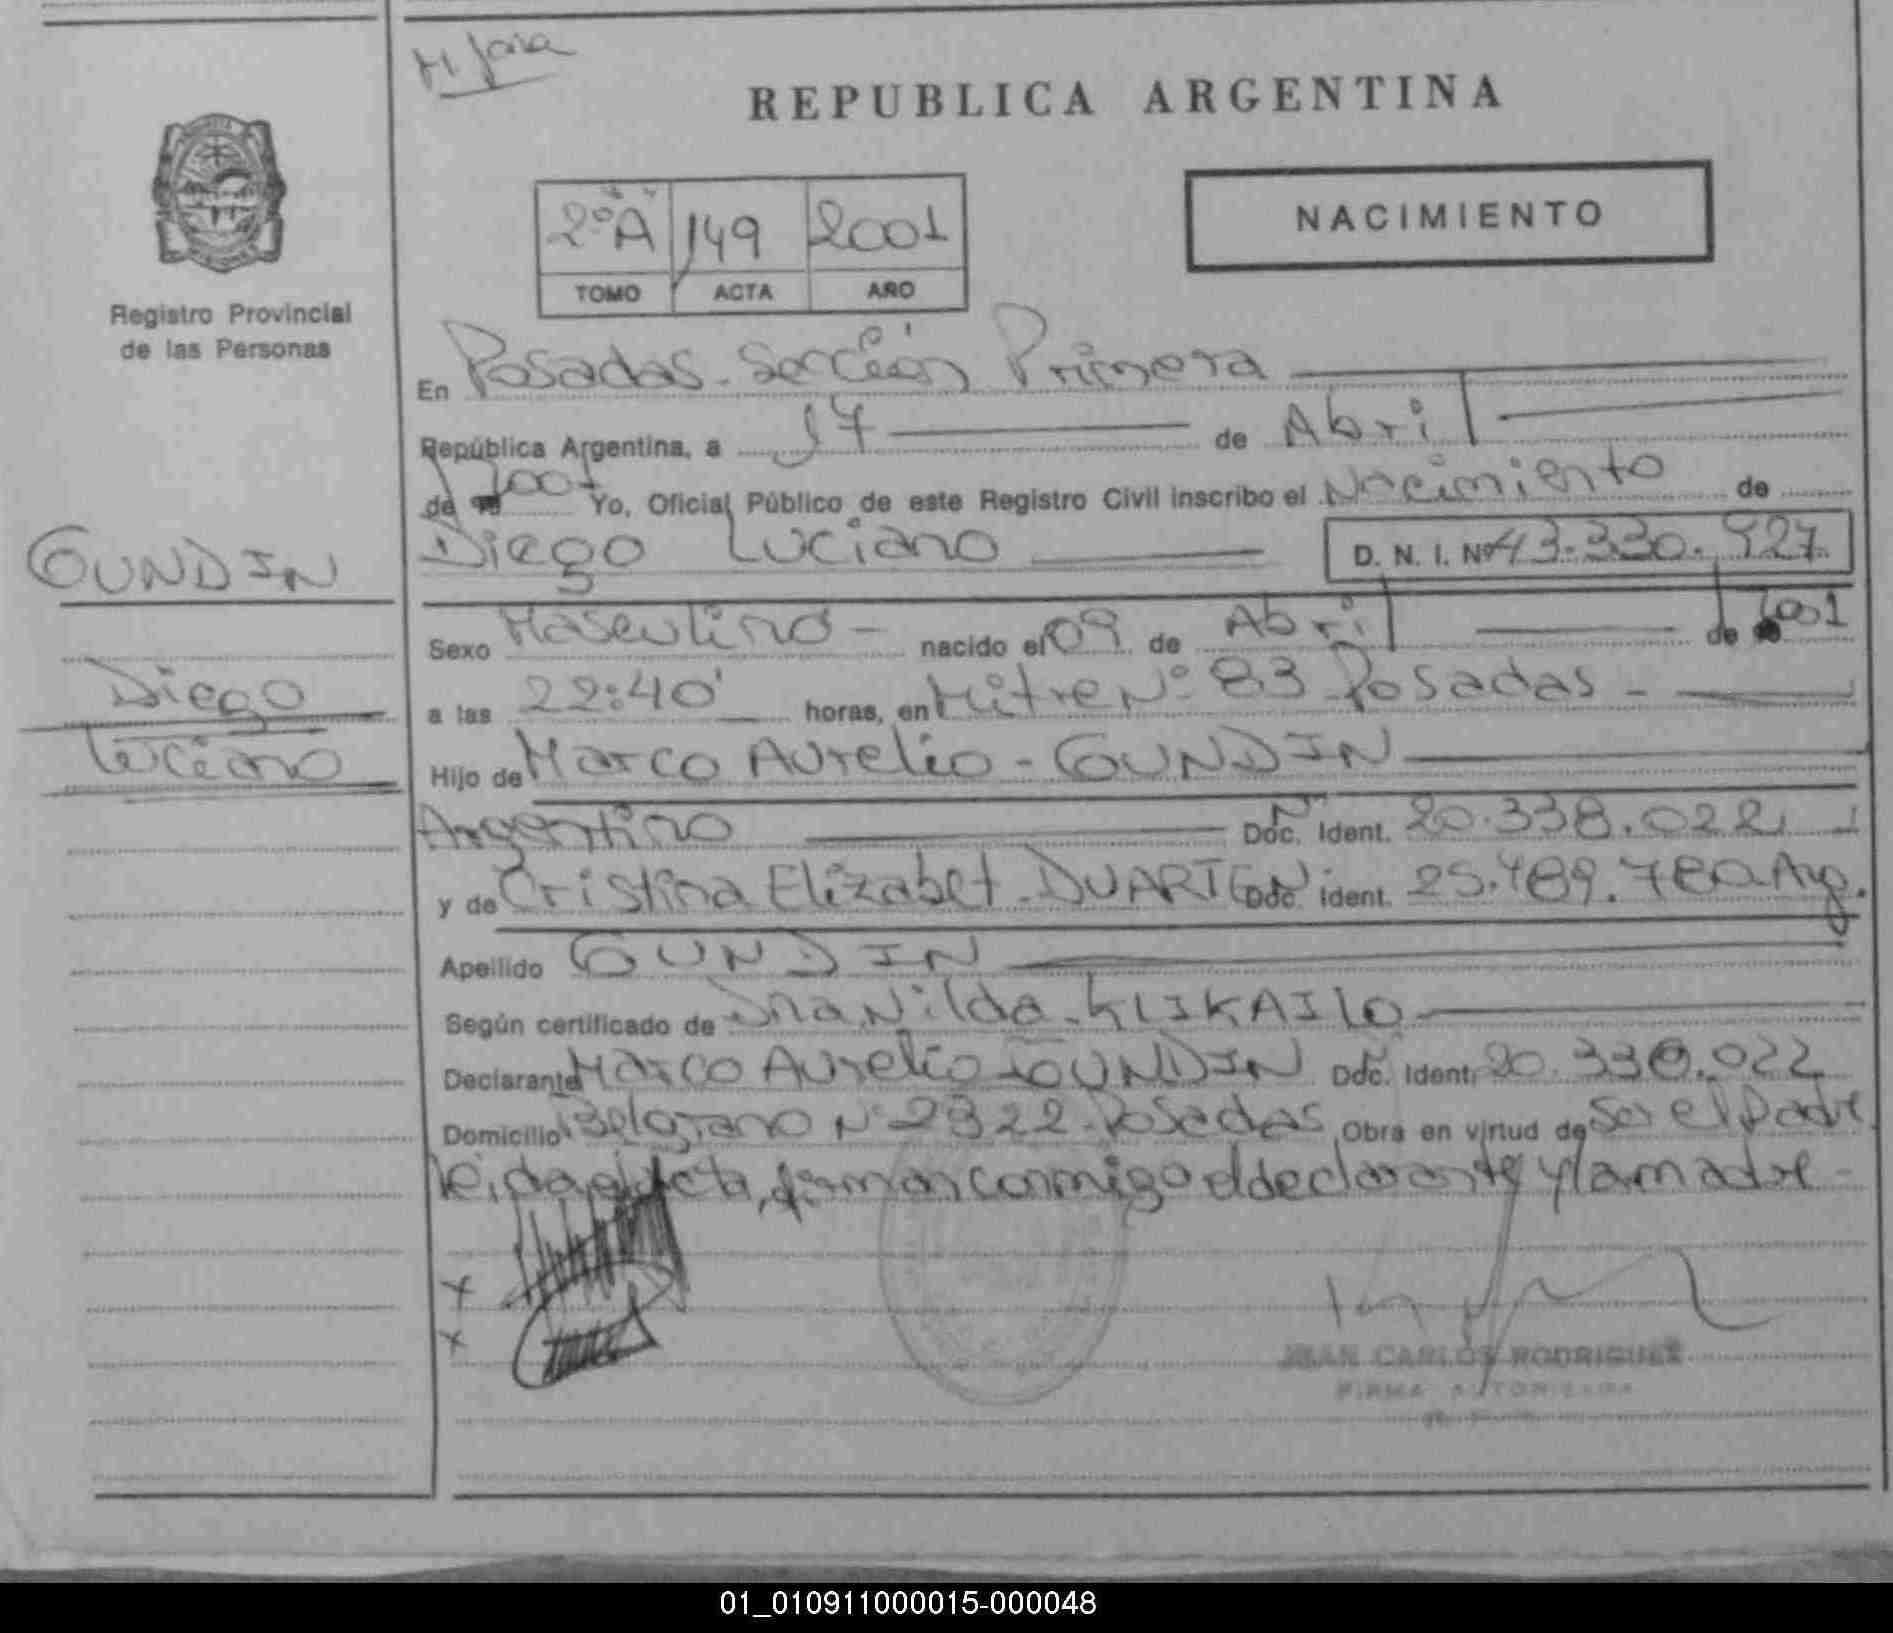 REPUBLICA ARGENTINA
NACIMIENTO
2º A 149 2001
TOMO ACTA AÑO
Registro Provincial
de las Personas
GUNDIN
Diego
Luciano
En Posadas - Sección Primera
República Argentina, a 17 de Abril
de 2001 Yo, Oficial Público de este Registro Civil inscribo el Nacimiento de
Diego Luciano D. N. I. Nº 43.330.927
Sexo Masculino - nacido el 09 de Abril de 2001
a las 22:40' horas, en Mitre Nº 83 Posadas -
Hijo de Marco Aurelio - GUNDIN
Argentino Doc. Ident. 20.338.022
y de Cristina Elizabet - DUARTE Doc. Ident. 25.489.780 Arg.
Apellido GUNDIN
Según certificado de Dra. Nilda - KLIKAILO
Declarante Marco Aurelio GUNDIN Doc. Ident. 20.338.022
Domicilio Belgrano Nº 2922 - Posadas Obra en virtud de Ser el Padre
leída el Acta, firman conmigo el declarante y la madre -
x
x
JUAN CARLOS RODRIGUEZ
FIRMA AUTORIZADA
01_010911000015-000048